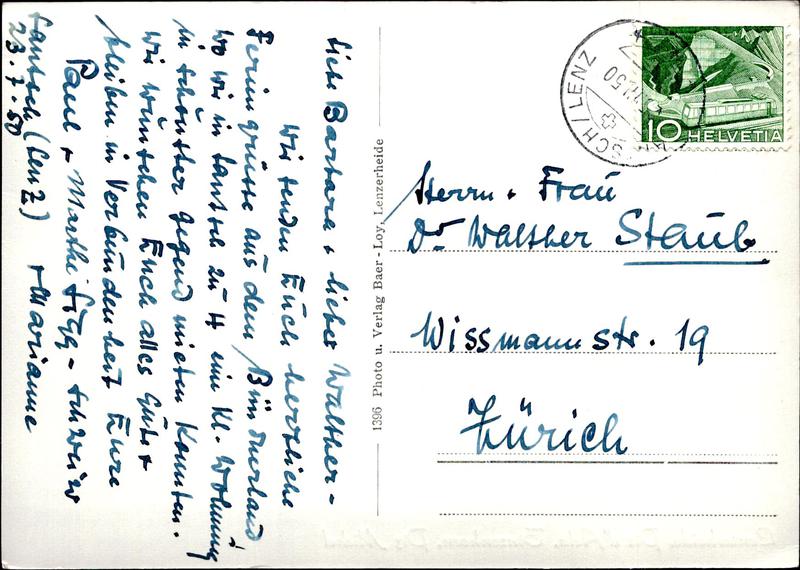 Liebe Barbara + lieber Walther -
Wir senden Euch herzliche
Feriengrüsse aus dem Bündnerland
wo wir in Lantsch zu 4 ein Kl. Wohnung
in schönster Gegend mieten konnten.
Wir wünschen Euch alles Gute +
bleiben in Verbundenheit Eure
Paul + Marthi - Schweizer
Lantsch (Lenz) + Marianne
23.7.50
1396 Photo u. Verlag Baer-Loy, Lenzerheide
LANTSCH/LENZ
50
10 HELVETIA
Herrn + Frau
Dr Walther Staub
Wissmannstr. 19
Zürich